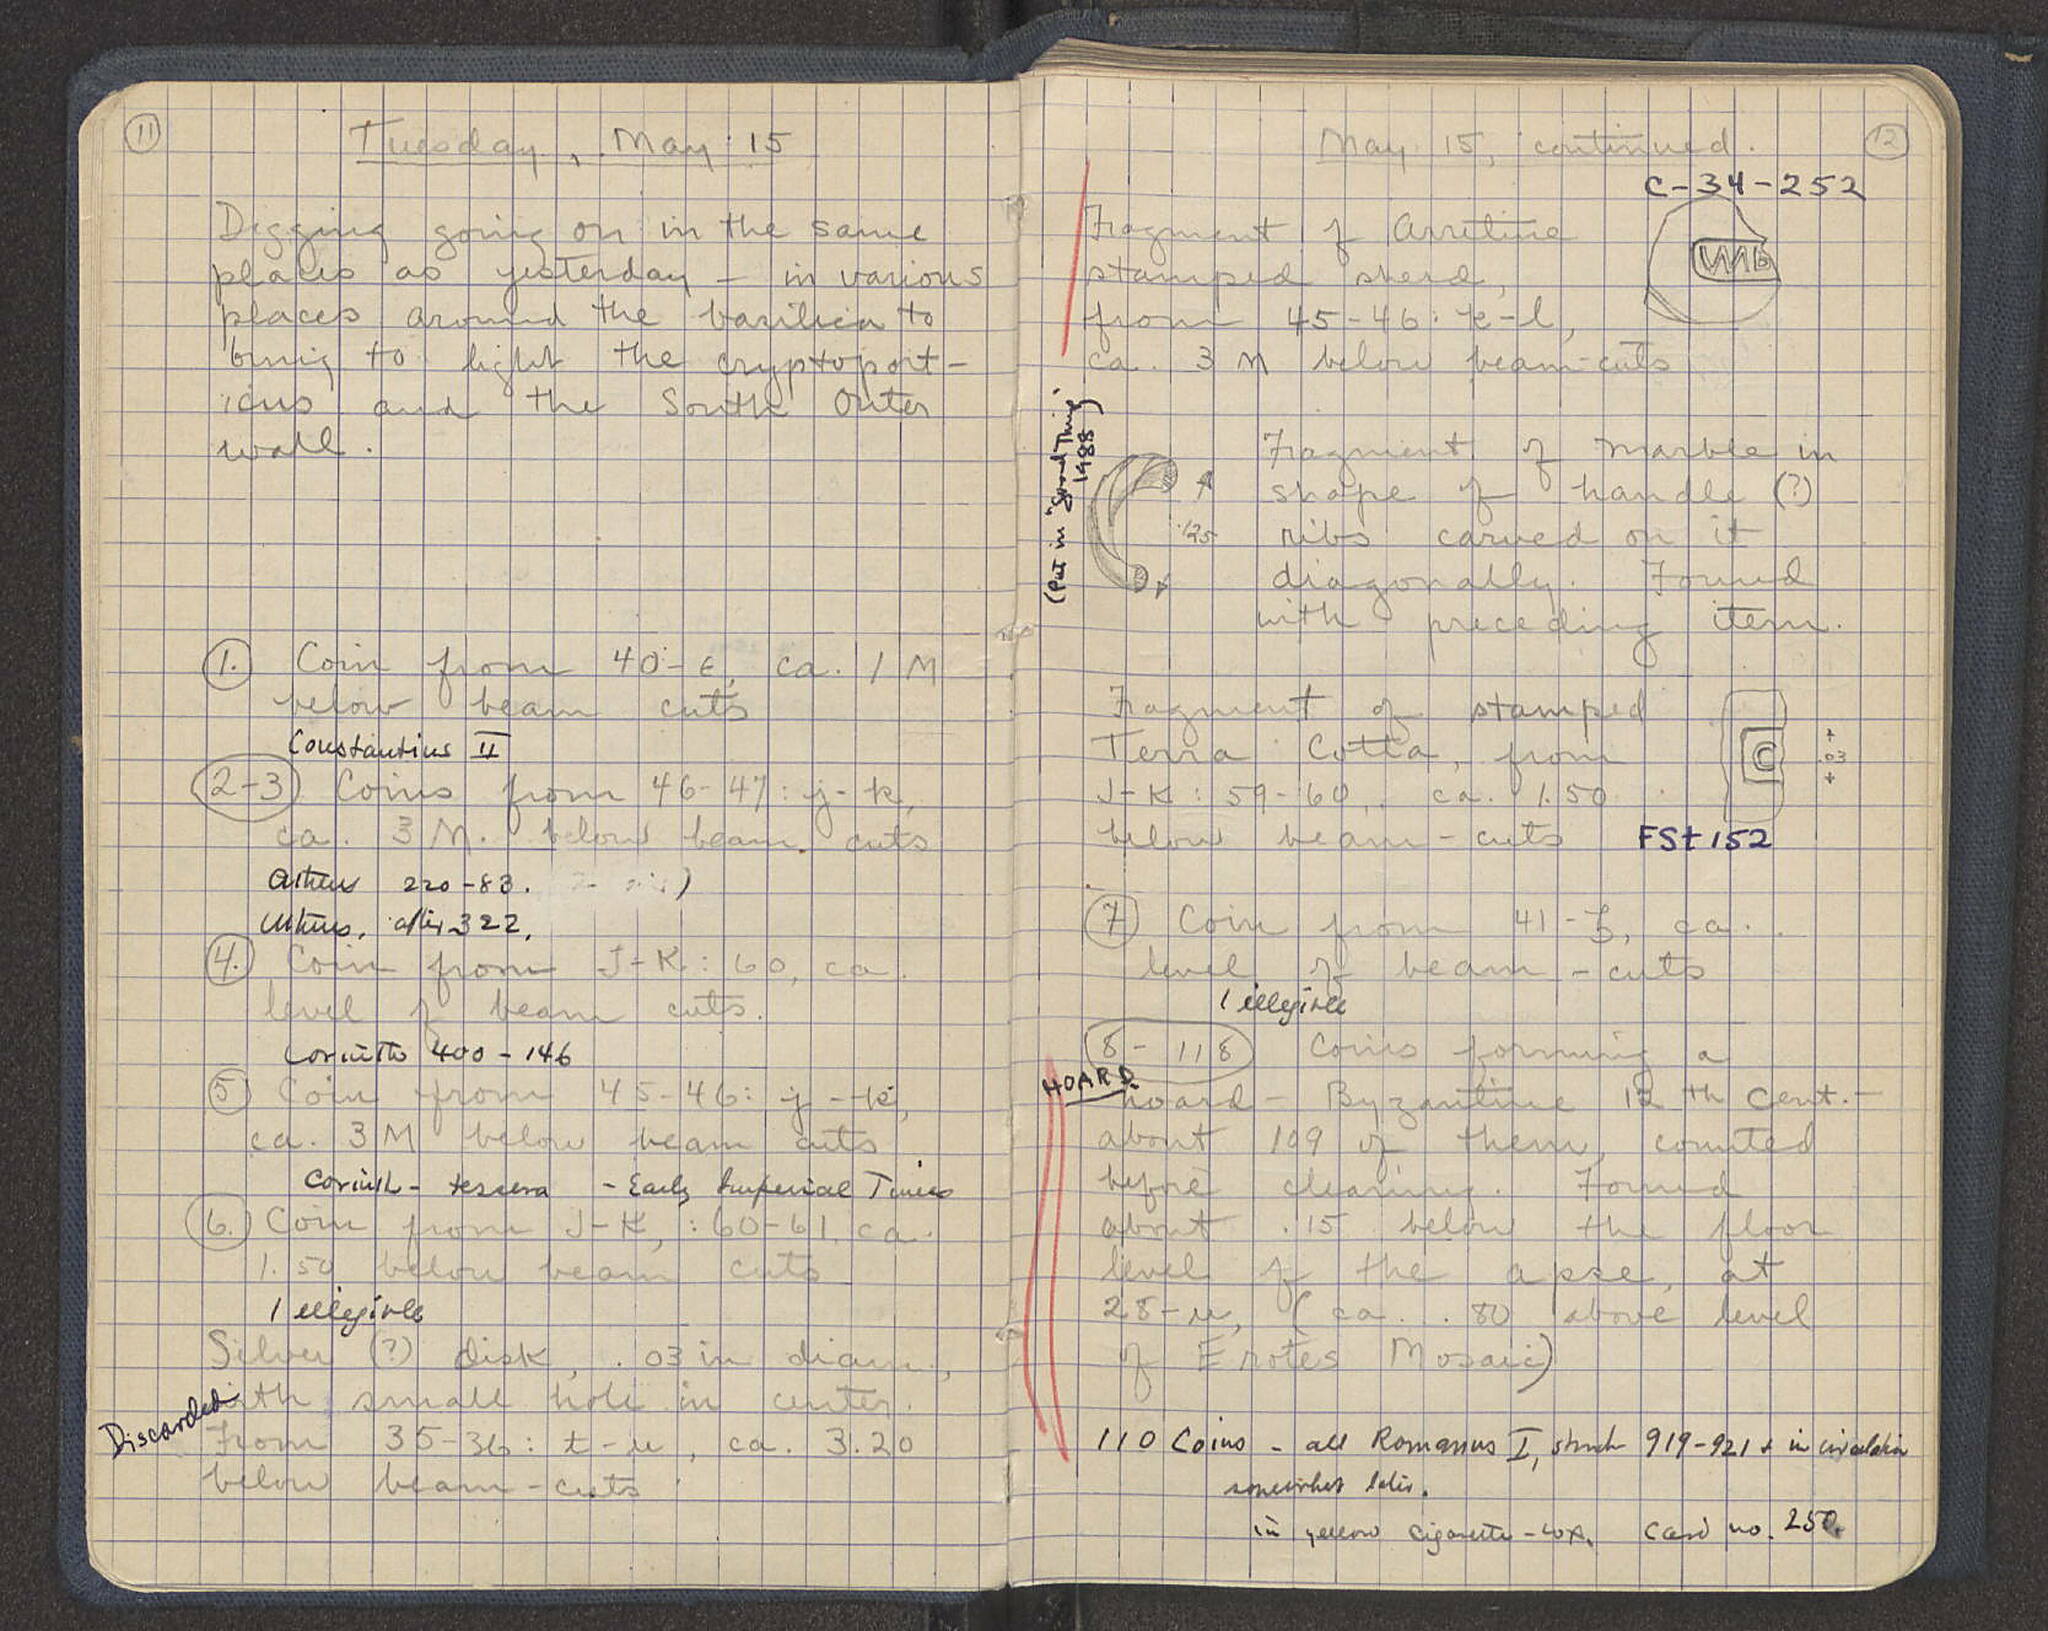 11
Tuesday, May 15
Digging going on in the same
places as yesterday – in various
places around the basilica to
bring to light the cryptoport-
icus and the South Outer
wall.
1. Coin from 40-ε, ca. 1 M
below beam cuts
Constantius II
2-3 Coins from 46-47: j-k,
ca. 3 M. below beam cuts
Athens 220-83.
Athens, after 322.
4. Coin from J-K: 60, ca.
level of beam cuts.
Corinth 400-146
5 Coin from 45-46: j-k,
ca. 3 M below beam cuts
Corinth - tessera - Early Imperial Times
6. Coin from J-K, : 60-61, ca.
1.50 below beam cuts
1 illegible
Silver (?) disk, .03 in diam.,
with small hole in center.
Discarded
From 35-36: t-u, ca. 3.20
below beam-cuts
12
May 15, continued.
C-34-252
Fragment of Arretine
stamped sherd,
from 45-46: k-l,
ca. 3 M below beam-cuts
(Put in 'Good Thing'
1988)
Fragment of marble in
shape of handle (?)
ribs carved on it
diagonally. Found
with preceding item.
Fragment of stamped
Terra Cotta, from
J-K: 59-60, ca. 1.50
below beam-cuts
C
.03
FSt 152
7 Coin from 41-ξ, ca.
level of beam-cuts
1 illegible
8-118 Coins forming a
HOARD
hoard - Byzantine 12th Cent. –
about 109 of them, counted
before cleaning. Found
about .15 below the floor
level of the apse, at
28-u, (ca. .80 above level
of Erotes Mosaic)
110 Coins - all Romanus I, struck 919-921 & in circulation
somewhat later.
in yellow cigarette-box. Card no. 250.